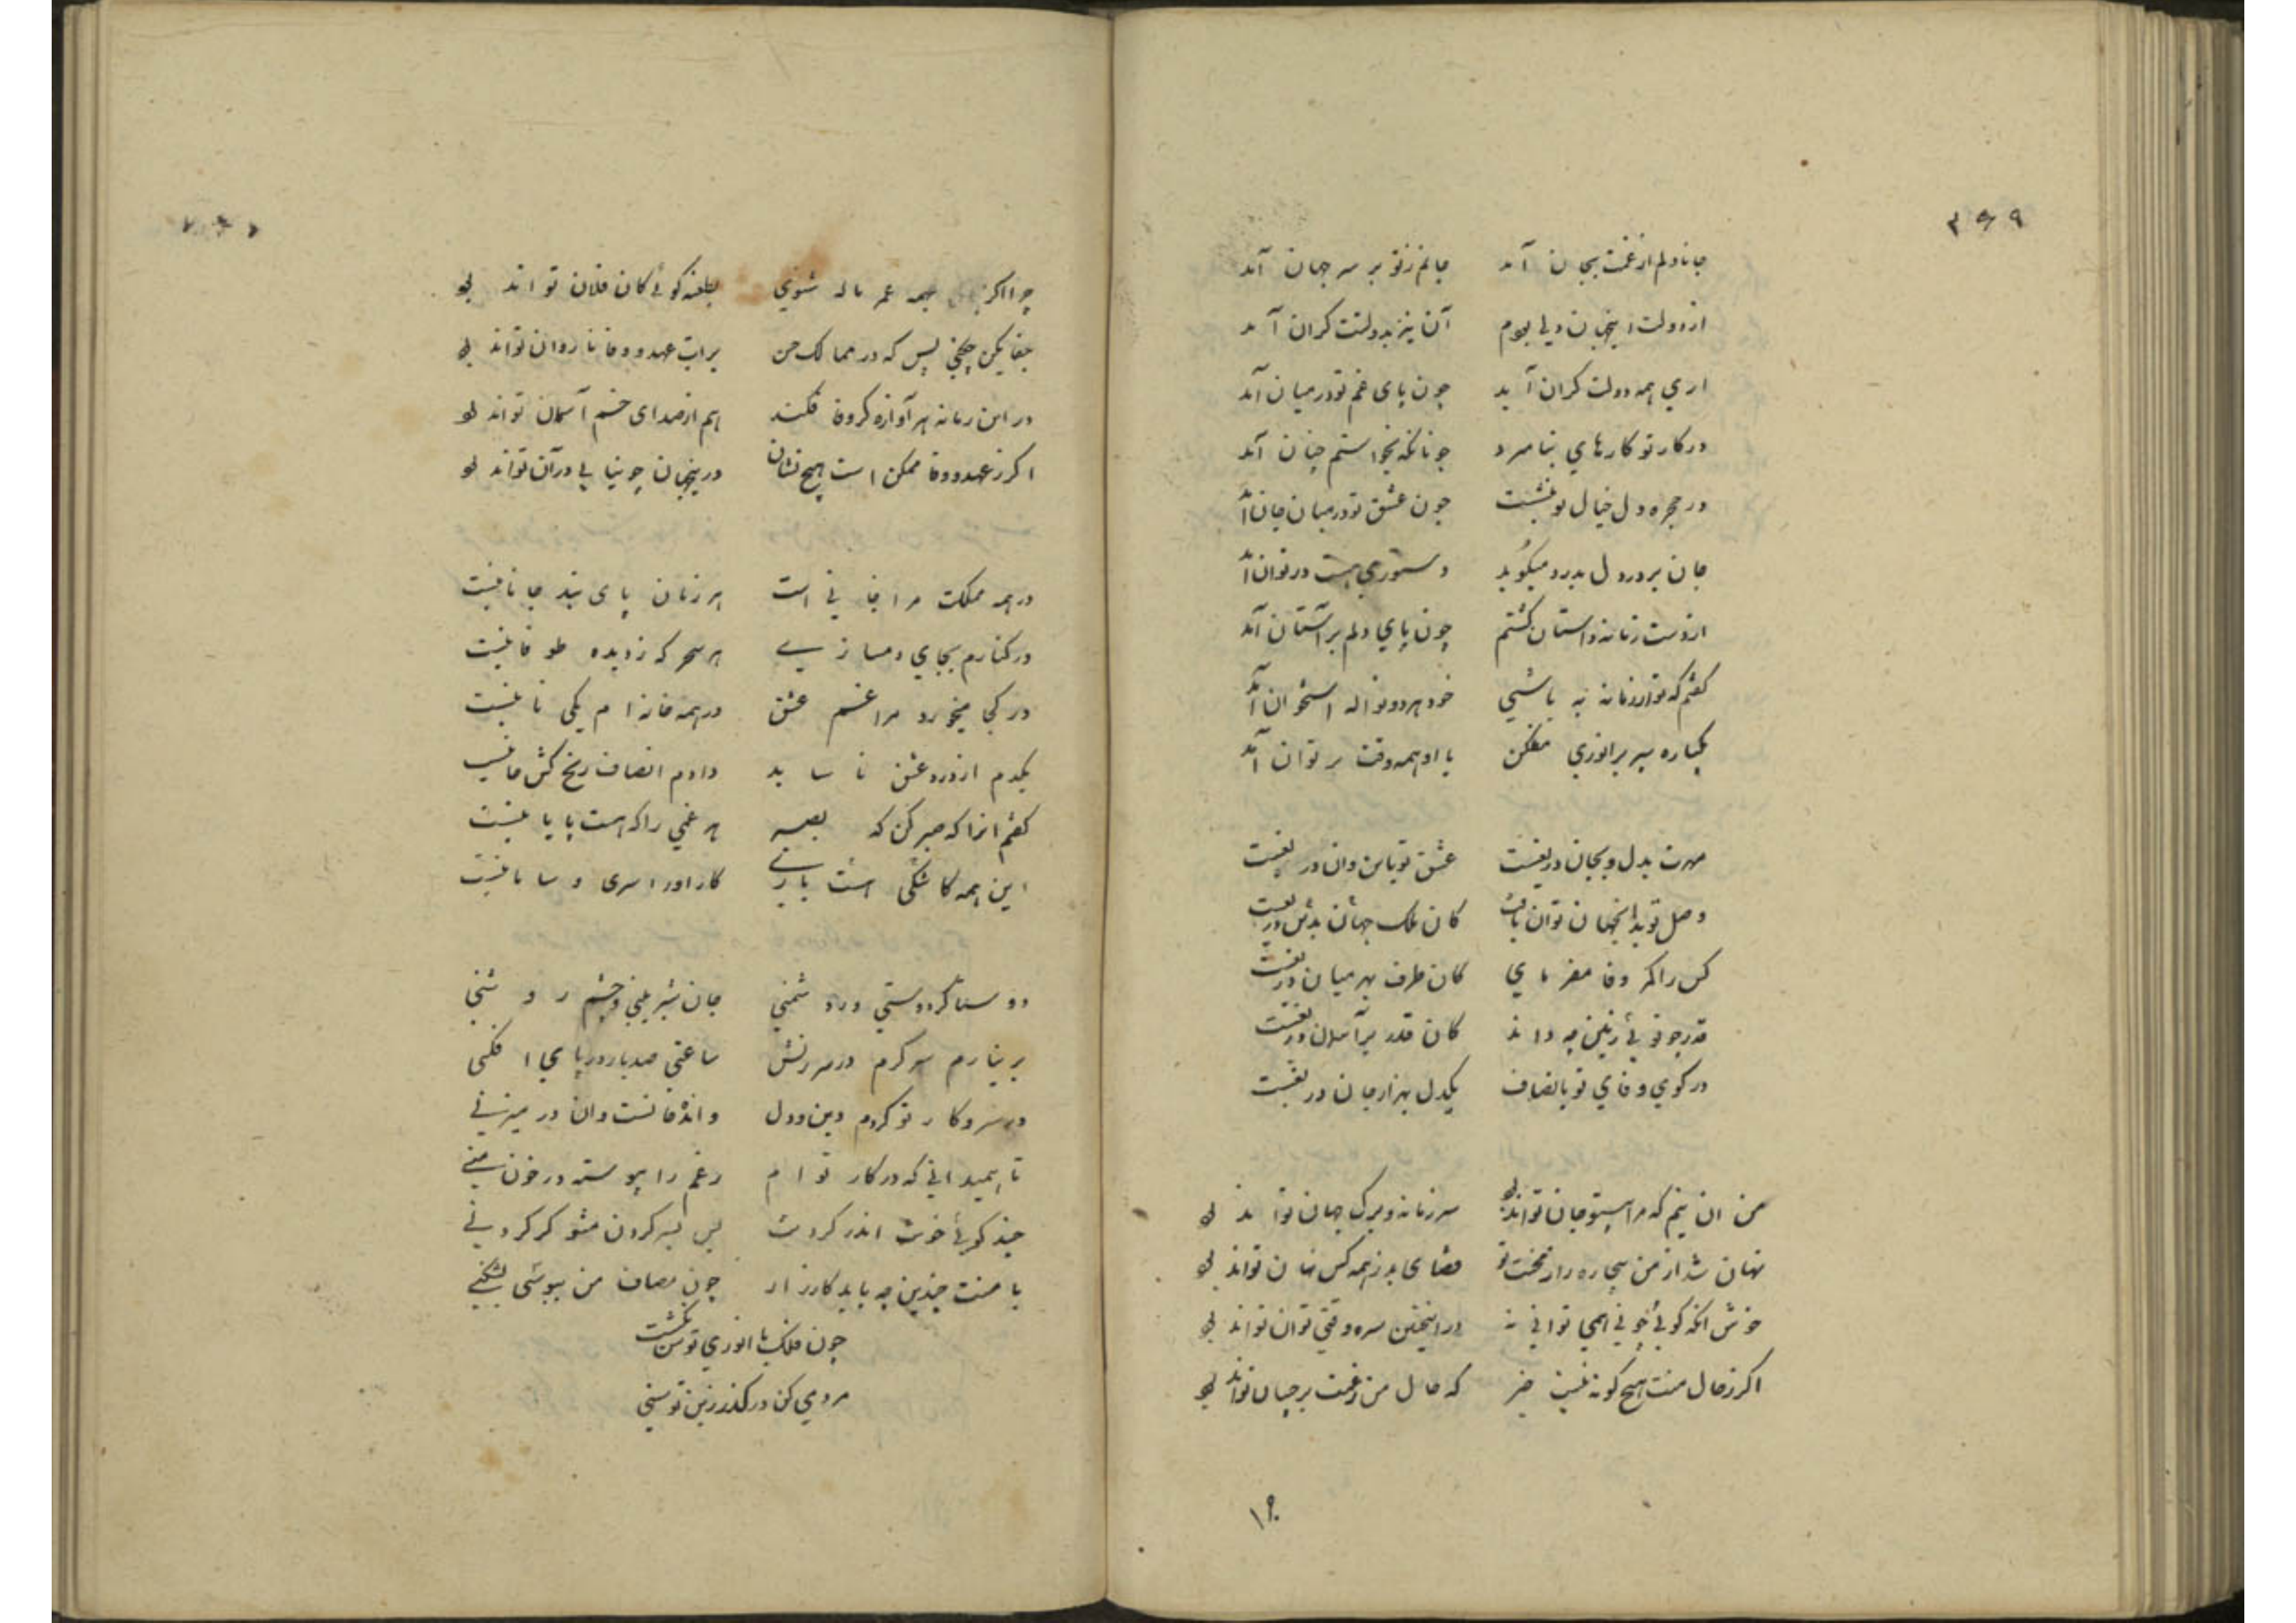 ۳۶۹
جانا دلم از غمت بجان آمد جانم ز تو بر سر جهان آمد
از دولت اینجهان دلی بودم آن نیز بدولتت کران آمد
اری همه دولت کران آید چون پای غم تو در میان آمد
در کار تو کارهای بنامرد چونانکه نخواستم چنان آمد
در حجره دل خیال تو بنشست چون عشق تو در میان جان آمد
جان بر در دل بدرد میکوید دستوری هست در توان آمد
از دست زمانه داستان کشتم چون پای دلم بر آستان آمد
کفتم که تو از زمانه به باشی خود هر دو نواله استخوان آمد
یکباره سپر بر انوری مفکن با او همه وقت بر توان آمد
مهرت بدل و بجان دریغست عشق تو باین و آن دریغست
وصل تو بدانجهان توان یافت کان ملک جهان بدین دریغست
کس را کمر وفا مفرمای کان طرف بهر میان دریغست
قدر چو توئی زمین چه داند کان قدر بر آسمان دریغست
در کوی وفای تو بانصاف یکدل بهزار جان دریغست
من ان نیم که مرا بیتو جان تواند بود سر زمانه و برک جهان تواند بود
نهان شد از من بیچاره راز محنت تو قضای بد ز همه کس نهان تواند بود
خوش انکه کوئی چونی همی توانی نه در اینچنین سره وقتی توان تواند بود
اکر ز حال منت هیچ کونه نیست خبر که حال من ز غمت بر چسان تواند بود
۱۹۰
چرا اکر همه عمر ناله شنوی بطعنه کوئی کان فلان تواند بود
جفا مکن چکنی بس که در ممالک حسن برات عهد و وفا ناروان تواند بود
در این زمانه هر آوازه کز وفا فکنند هم از صدای خم آسمان تواند بود
اکر ز عهد و وفا ممکن است هیچ نشان درینجهان چو نیابی در آن تواند بود
در همه مملکت مرا جانی است هر زمان پای بند جانانیست
در کنارم بجای دمسازی هر سحر که ز دیده طوفانیست
در کجا میخورد مرا غم عشق در همه خانه ام یکی نانیست
یکدم از درد عشق ناساید دادم انصاف رنج کش جانیست
کفتم انرا که صبر کن که بصبر هر غمی را که هست پایانیست
این همه کاشکی است باری کار او را سری و سامانیست
دوستا کر دوستی ور دشمنی جان شیرینی و چشم روشنی
بر نیارم سر کرم در سرزنش ساعتی صد بار در پای افکنی
در سر و کار تو کردم دین و دل وانده فانست و ان در میزنی
تا همیدانی که در کار تو ام رغم را پیوسته در خون منی
چند کوئی خونت اندر کردنت بس بسر کردن مشو کر کردنی
با منت چندین چه باید کارزار چون مصاف من ببوسی بشکنی
چون فلک با انوری توسن بکشت
مردمی کن در کذر زین توسنی